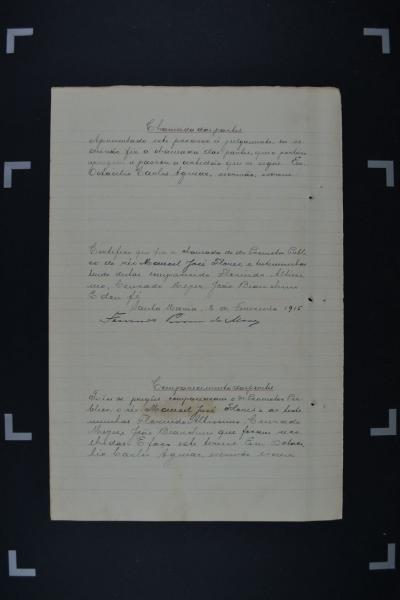 Chamada das partes
Apresentado este processo a julgamento na se
cretaria fiz a chamada das partes que o porteiro
apregoou e passou a certidão que se segue. Eu
Octacilio Carlos Aguiar, escrivão, escrevi
Certifico que fiz a chamada do dr Promotor Publi
co do réo Manoel José Flores e testemunhas
tendo destas comparecido Florindo Altissi
mo, Conrado Meyer, João Bianchini
E dou fé
Santa Maria, 2 de Fevereiro 1915
Comparecimento das partes
Feito os pregões compareceram o dr Promotor Pu
blico, o réo Manoel José Flores e as teste
munhas Florindo Altissimo, Conrado
Meyer, João Bianchini que foram reco
lhidas. E faço este termo. Eu Octaci
lio Carlos Aguiar, escrivão escrevi